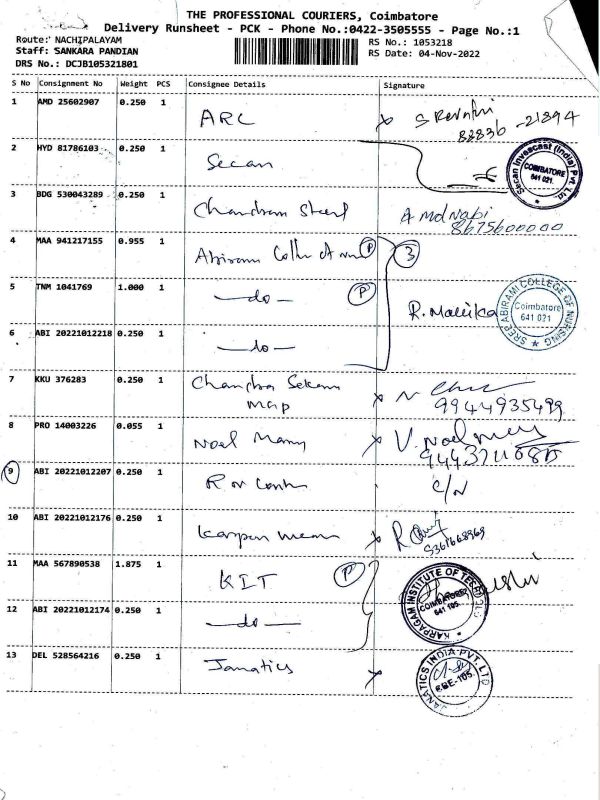 THE PROFESSIONAL COURIERS, Coimbatore
Delivery Runsheet - PCK - Phone No.:0422-3505555 - Page No.:1
Route: NACHIPALAYAM
RS No.: 1053218
Staff: SANKARA PANDIAN
RS Date: 04-Nov-2022
DRS No.: DCJB105321801
S No Consignment No Weight PCS Consignee Details Signature
1 AMD 25602907 0.250 1 ARC
88836-21894
2 HYD 81786103 0.250 1 Secan
Secan Invescast (India) Pvt. Ltd. COIMBATORE 641 021.
3 BDG 530043289 0.250 1 Chandram Steel
8675600000
4 MAA 941217155 0.955 1 P 3
5 TNM 1041769 1.000 1 -do- P
R. Mallika
SREE ABIRAMI COLLEGE OF NURSING Coimbatore 641 021
6 ABI 20221012218 0.250 1 -do-
7 KKU 376283 0.250 1 Chandra Sekara
9944935499
8 PRO 14003226 0.055 1 Noel
V. Noel
9 ABI 20221012207 0.250 1
C/N
10 ABI 20221012176 0.250 1
11 MAA 567890538 1.875 1 KIT P
KARPAGAM INSTITUTE OF COIMBATORE 641 105.
12 ABI 20221012174 0.250 1 -do-
13 DEL 528564216 0.250 1 Janatics
JANATICS INDIA PVT. LTD